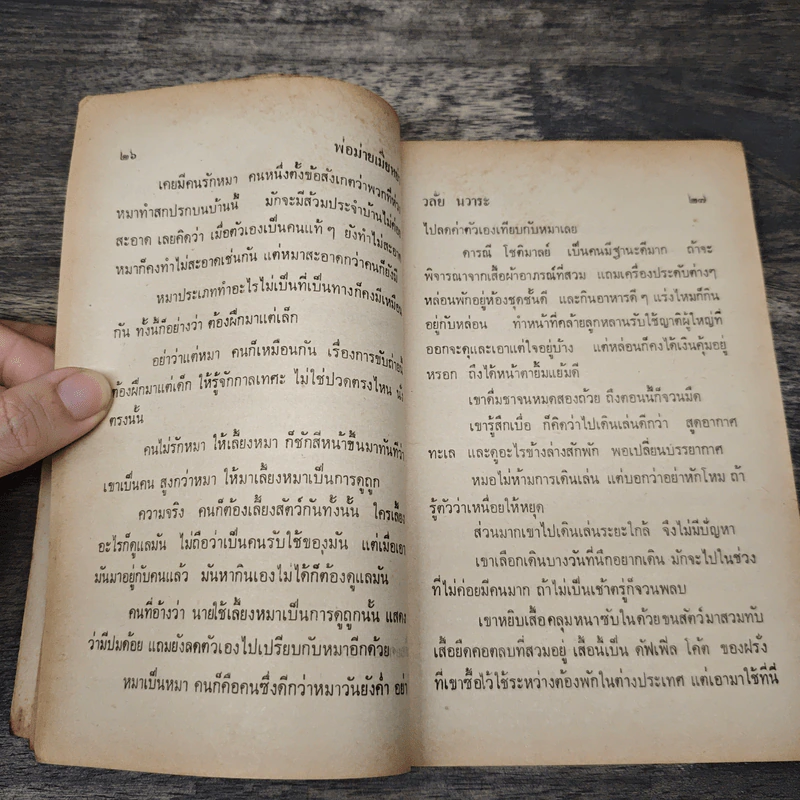 ๒๖
พ่อม่ายเมีย
เคยมีคนรักหมา คนหนึ่งตั้งข้อสังเกตว่าพวกที่
หมาทำสกปรกบนบ้านนี้ มักจะมีส้วมประจำบ้านไม่ค่อย
สะอาด เลยคิดว่า เมื่อตัวเองเป็นคนแท้ ๆ ยังทำไม่สะอาด
หมาก็คงทำไม่สะอาดเช่นกัน แต่หมาสะอาดกว่าคนก็ยังมี
หมาประเภททำอะไรไม่เป็นที่เป็นทางก็คงมีเหมือน
กัน ทั้งนี้ก็อย่างว่า ต้องฝึกมาแต่เล็ก
อย่าว่าแต่หมา คนก็เหมือนกัน เรื่องการขับถ่าย
ต้องฝึกมาแต่เด็ก ให้รู้จักกาลเทศะ ไม่ใช่ปวดตรงไหน
ตรงนั้น
คนไม่รักหมา ให้เลี้ยงหมา ก็ชักสีหน้าขึ้นมาทันทีว่า
เขาเป็นคน สูงกว่าหมา ให้มาเลี้ยงหมาเป็นการดูถูก
ความจริง คนก็ต้องเลี้ยงสัตว์กันทั้งนั้น ใครเลี้ยง
อะไรก็ดูแลมัน ไม่ถือว่าเป็นคนรับใช้ของมัน แต่เมื่อเอา
มันมาอยู่กับคนแล้ว มันหากินเองไม่ได้ก็ต้องดูแลมัน
คนที่อ้างว่า นายใช้เลี้ยงหมาเป็นการดูถูกนั้น แสดง
ว่ามีปมด้อย แถมยังลดตัวเองไปเปรียบกับหมาอีกด้วย
หมาเป็นหมา คนก็คือคนซึ่งดีกว่าหมาวันยังค่ำ อย่า
วลัย นวาระ
๒๗
ไปลดค่าตัวเองเทียบกับหมาเลย
ดารณี โชติมาลย์ เป็นคนมีฐานะดีมาก ถ้าจะ
พิจารณาจากเสื้อผ้าอาภรณ์ที่สวม แถมเครื่องประดับต่างๆ
หล่อนพักอยู่ห้องชุดชั้นดี และกินอาหารดี ๆ แร่งไหมก็กิน
อยู่กับหล่อน ทำหน้าที่คล้ายลูกหลานรับใช้ญาติผู้ใหญ่ที่
ออกจะดุและเอาแต่ใจอยู่บ้าง แต่หล่อนก็คงได้เงินคุ้มอยู่
หรอก ถึงได้หน้าตายิ้มแย้มดี
เขาดื่มชาจนหมดสองถ้วย ถึงตอนนี้ก็จวนมืด
เขารู้สึกเบื่อ ก็คิดว่าไปเดินเล่นดีกว่า สูดอากาศ
ทะเล และดูอะไรข้างล่างสักพัก พอเปลี่ยนบรรยากาศ
หมอไม่ห้ามการเดินเล่น แต่บอกว่าอย่าหักโหม ถ้า
รู้ตัวว่าเหนื่อยให้หยุด
ส่วนมากเขาไปเดินเล่นระยะใกล้ จึงไม่มีปัญหา
เขาเลือกเดินบางวันที่นึกอยากเดิน มักจะไปในช่วง
ที่ไม่ค่อยมีคนมาก ถ้าไม่เป็นเช้าตรู่ก็จวนพลบ
เขาหยิบเสื้อคลุมหนาซับในด้วยขนสัตว์มาสวมทับ
เสื้อยืดคอตลบที่สวมอยู่ เสื้อนี้เป็น ดัฟเฟิล โค้ต ของฝรั่ง
ที่เขาซื้อไว้ใช้ระหว่างต้องพักในต่างประเทศ แต่เอามาใช้ที่นี่